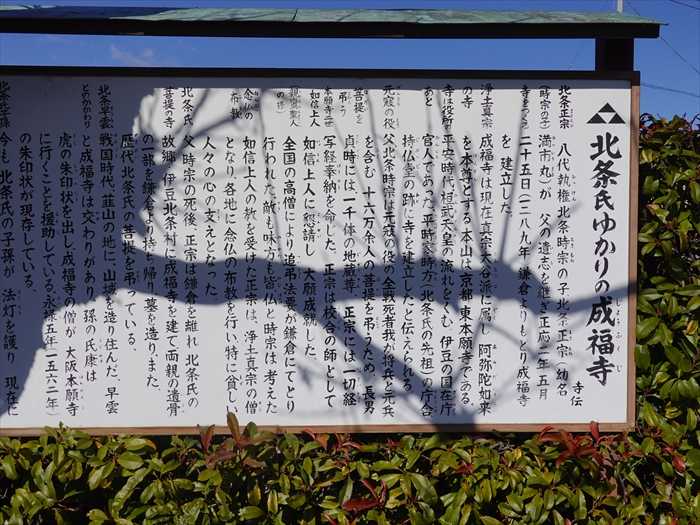 北条氏ゆかりの成福寺
じょうふくじ
寺伝
北条正宗
(時宗の子)
寺をつくる
八代執権 北条時宗の子 北条正宗(幼名
満市丸)が 父の遺志を継ぎ正応二年五月
二十五日(一二八九年)鎌倉よりもどり成福寺
を建立した。
浄土真宗
の寺
成福寺は現在真宗大谷派に属し 阿弥陀如来
を本尊とする。本山は京都 東本願寺である。
寺は役所の
あと
平安時代、桓武天皇の流れをくむ、伊豆の国在庁
官人であった、平時家 時方(北条氏の先祖)の庁舎
持仏堂の跡に寺を建立したと伝えられる。
元寇の役
父北条時宗は元寇の役の全戦死者我が将兵と元兵
菩提を
弔う
を含む 十六万余人の菩提を弔うため、長男
貞時は、一千体の地蔵尊、正宗には一切経
写経奉納を命じた。正宗は校合の師として
本願寺二世
如信上人
(親鸞聖人
の孫)
如信上人に懇請し 大願成就した。
全国の高僧により追弔法要が鎌倉にてとり
行われた。敵も味方も皆仏と時宗は考えた
念仏の
布教
如信上人の教を受けた正宗は、浄土真宗の僧
となり、各地に念仏の布教を行い特に貧しい
人々の心の支えとなった。
北条氏
菩提の寺
父 時宗の死後、正宗は鎌倉を離れ 北条氏の
故郷 伊豆北条村に成福寺を建て両親の遺骨
の一部を鎌倉より持ち帰り墓を造りました。
歴代北条氏の菩提を弔っている。
北条早雲
とのかかわり
戦国時代、韮山の地に、山城を造り住んだ、早雲
と成福寺は交わりがあり、孫の氏康は
虎の朱印状を出し、成福寺の僧が 大阪本願寺
に行くことを援助している。永禄五年(一五六二年)
の朱印状が現存している。
今も 北条氏の子孫が 法灯を護り 現在に